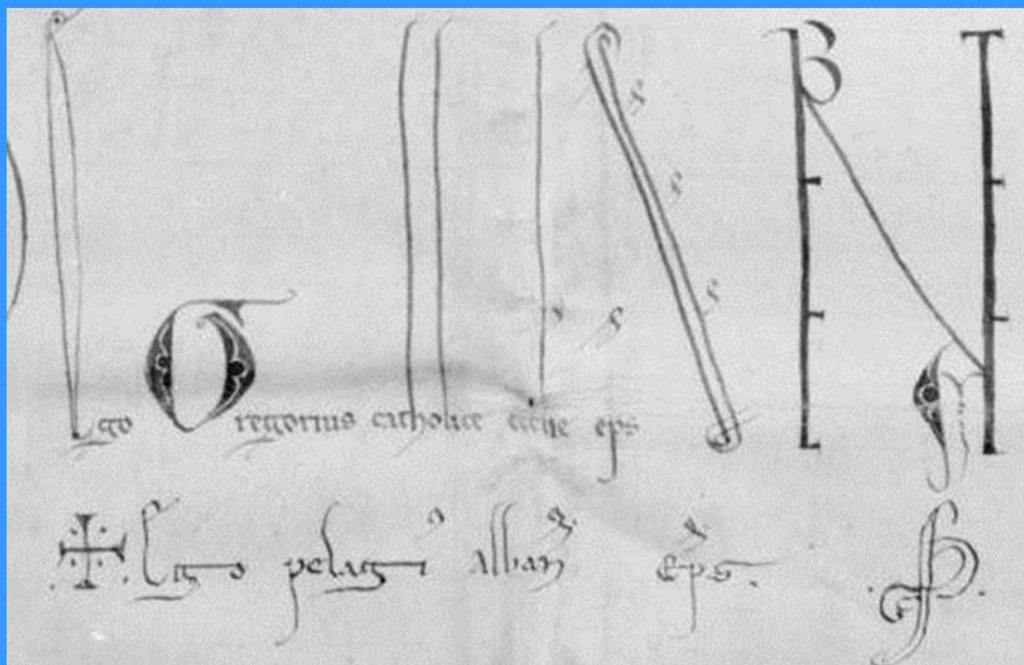 Ego Gregorius catholice eps
✠ Ego pelagi' alban eps